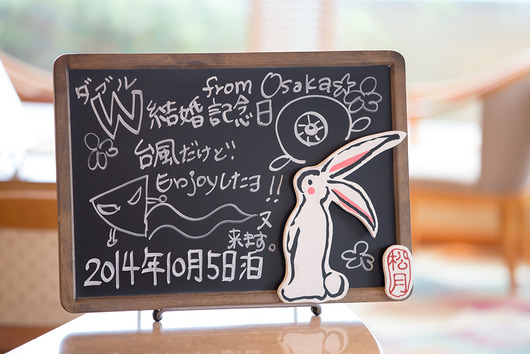 from Osaka
ダブル
W結婚記念日
台風だけど!
Enjoyしたヨ!!
又
来ます。
2014年10月5日泊
松月